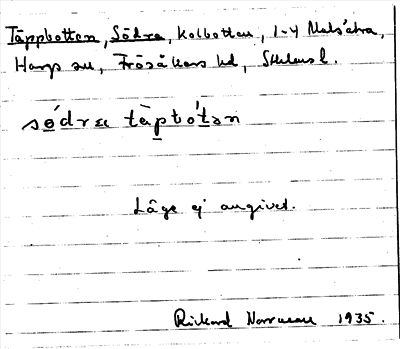 Täppbotten, Södra, kolbotten, 1-4 Mats'ätra,
Hargs sn, Frösåkers hd, Sthlms l.
södrɛ tàpbo´tən
Läge ej angivet.
Rickard 1935.